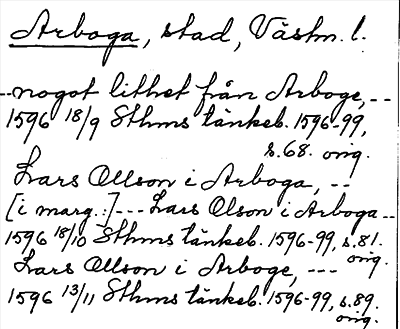 Arboga, stad, Västm. l.
--nogot lithet från Arboge,--
1596 18/9 Sthms tänkeb. 1596-99,
s.68. orig.
Lars Ollson i Arboga, --
[i marg.:]--- Lars Olson i Arboga--
1596 18/10 Sthms tänkeb. 1596-99, s.81.
orig.
Lars Ollson i Arboge, ---
1596 13/11 Sthms tänkeb. 1596-99, s.89.
orig.